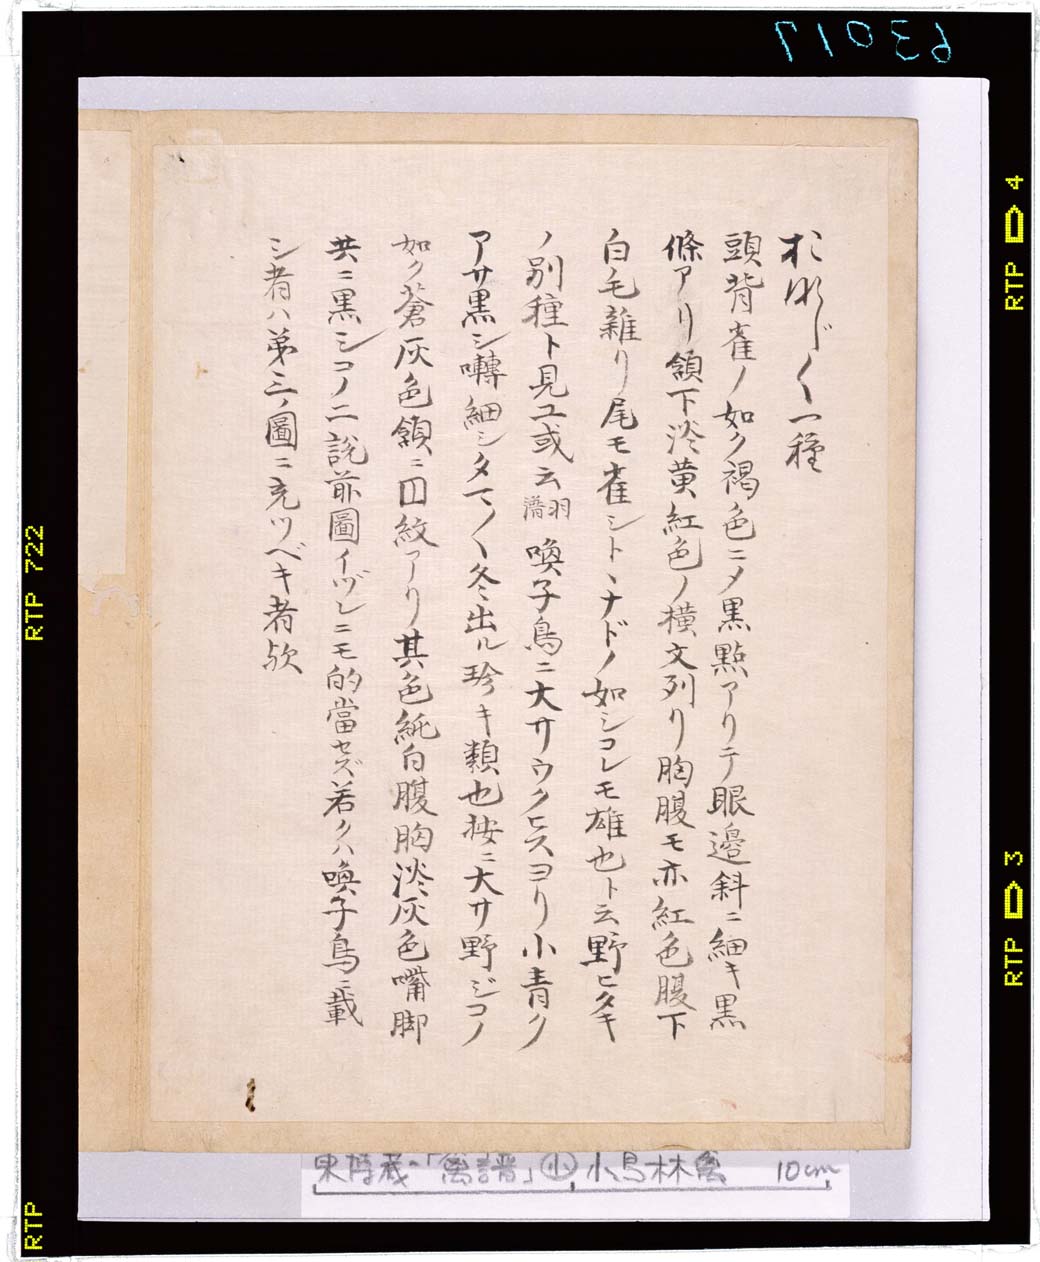 63017
おなじく一種
頭背雀ノ如ク褐色ニメ黒點アリテ眼邉斜ニ細キ黒
條アリ頷下淡黄紅色ノ横文列リ胸腹モ亦紅色腹下
白毛雜リ尾モ雀シトヽナドノ如シコレモ雄也ト云野ヒタキ
ノ別種ト見ユ或云 羽譜 喚子鳥ニ大サウクヒスヨリ小青ク
アサ黒シ囀細シタマ〱冬出ル珍キ類也按ニ大サ野ジコノ
如ク蒼灰色頷ニ囙紋アリ其色純白腹胸淡灰色嘴脚
共ニ黒シコノ二説前圖イヅレニモ的當セズ若クハ喚子鳥ニ載
シ者ハ第三ノ圖ニ充ツベキ者欤
東博蔵「禽譜」小 小鳥林禽 10cm
RTP 4
RTP 3
RTP 722
RTP